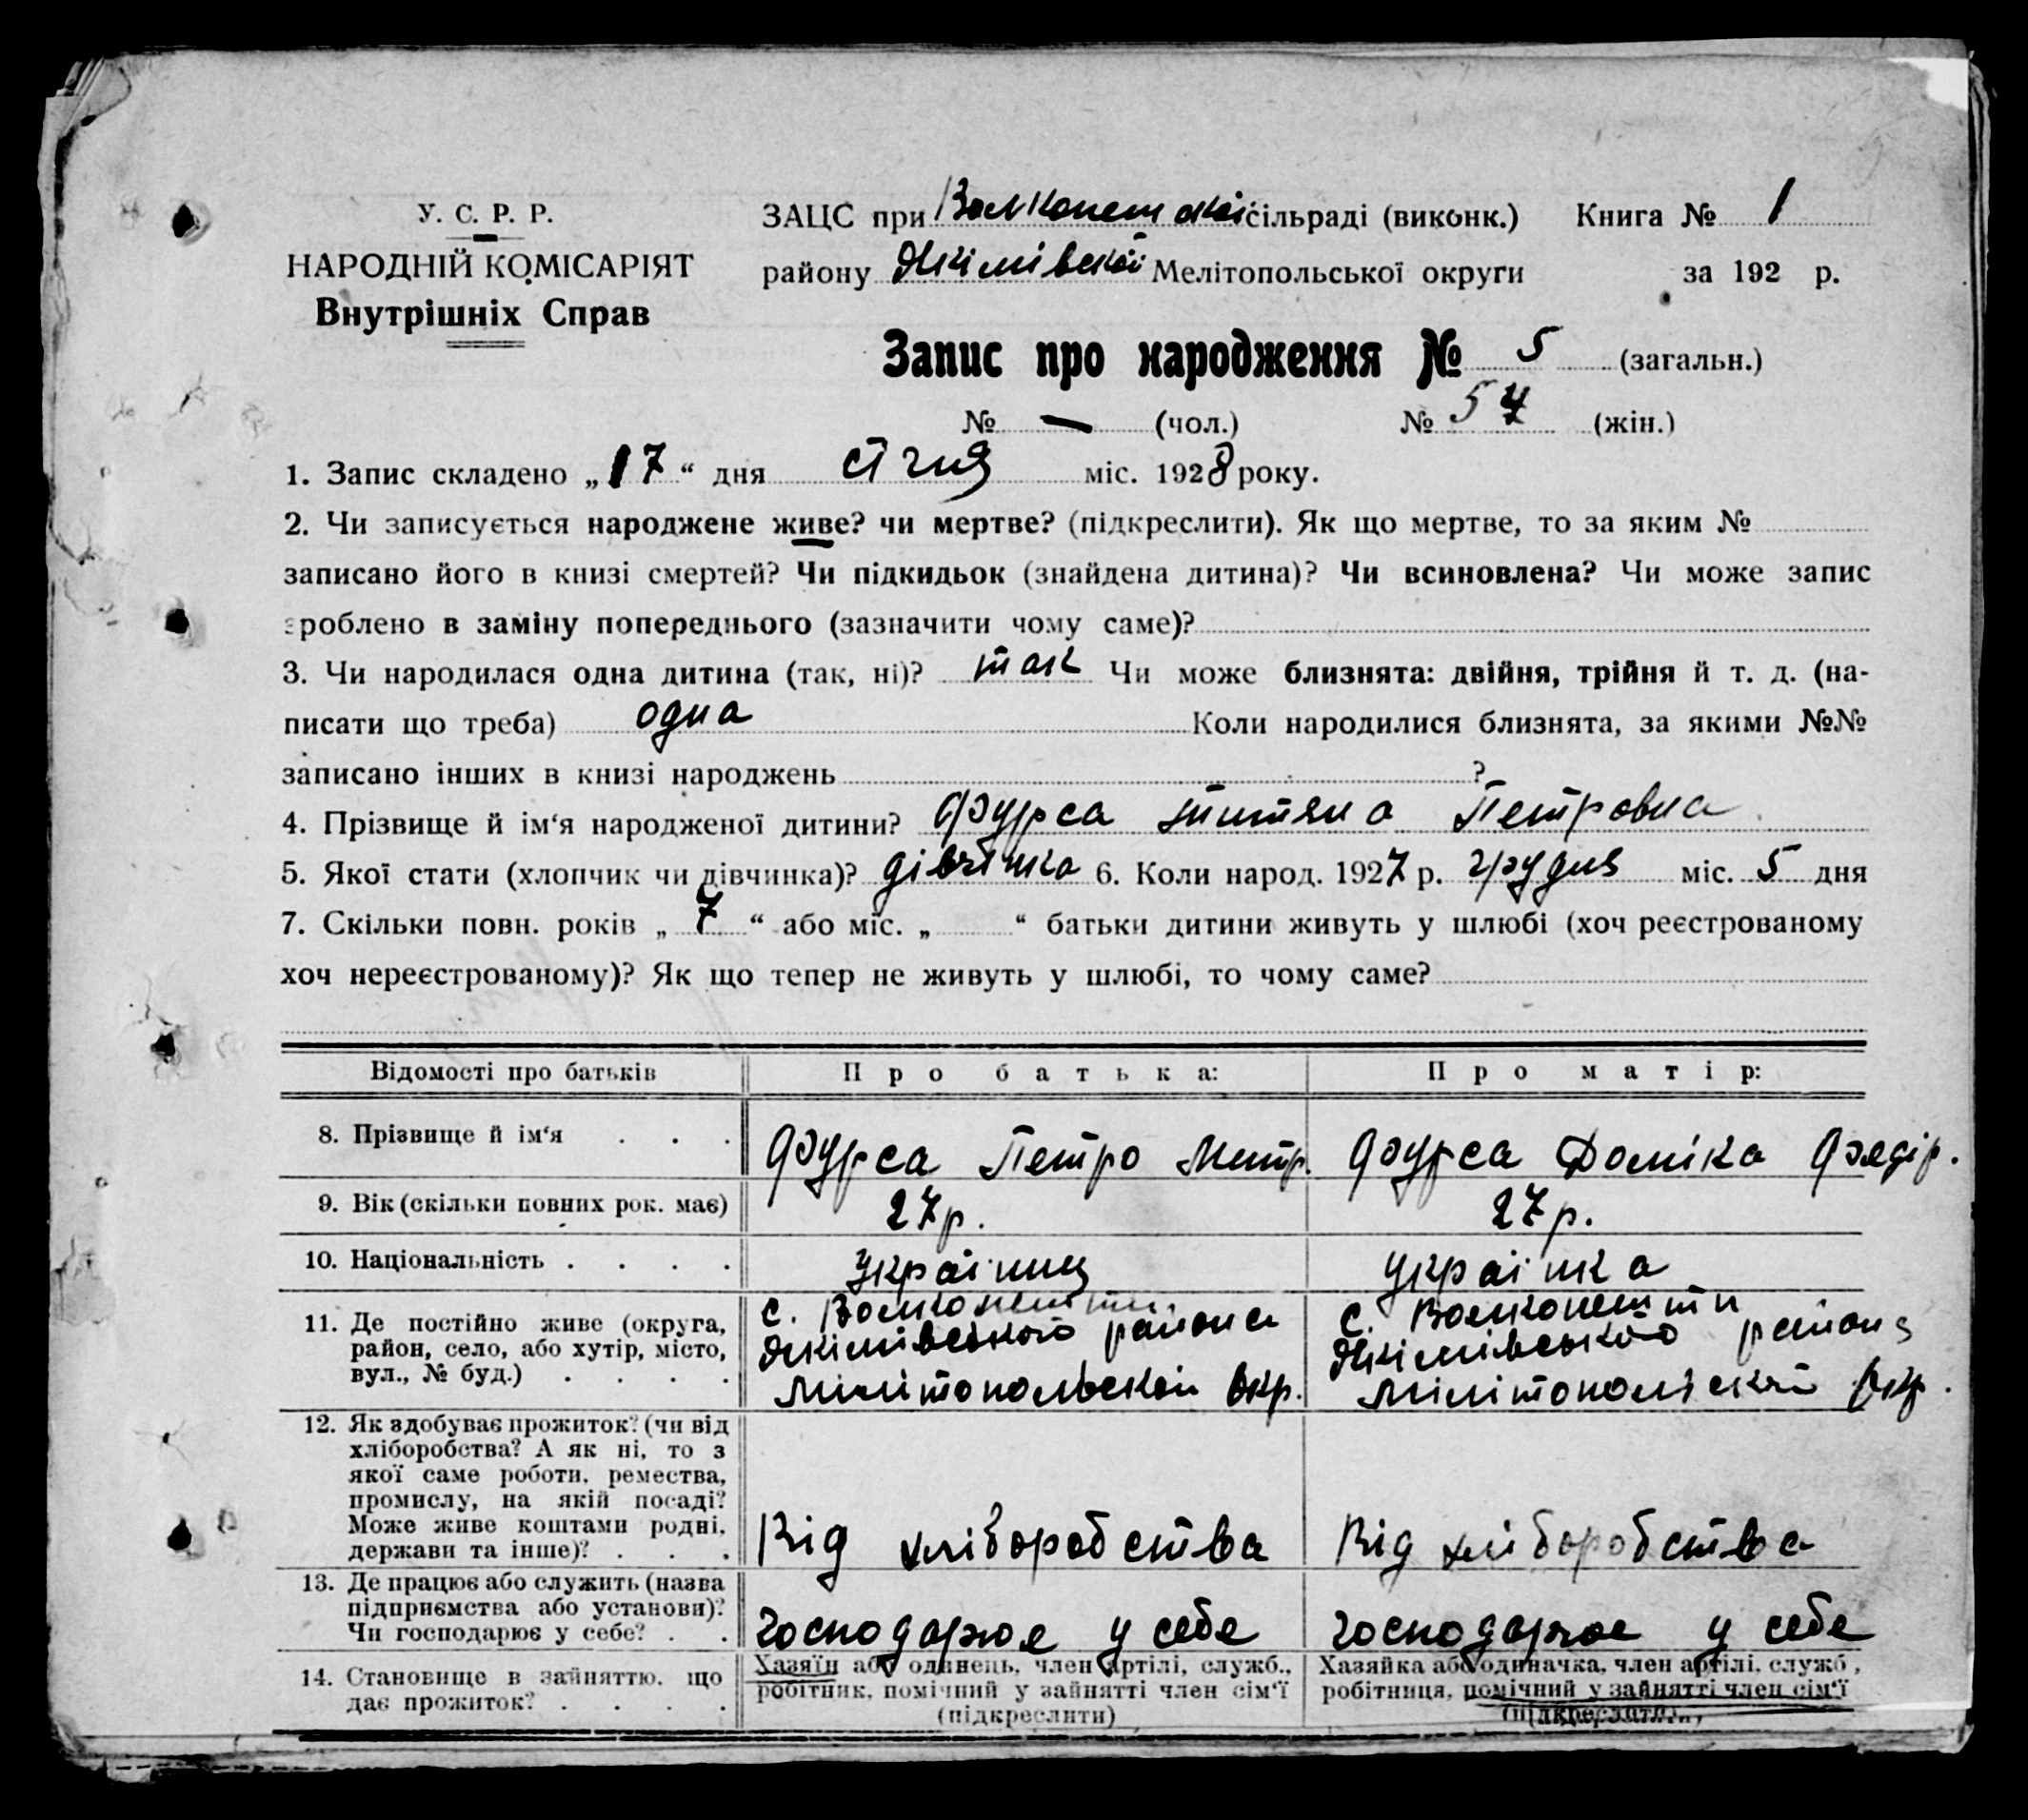 У. С. Р. Р.
НАРОДНІЙ КОМІСАРІЯТ
Внутрішніх Справ
ЗАЦС при Волконештської сільраді (виконк.) Книга № 1
району Якімівской Мелітопольської округи за 192 р.
Запис про народження № 5 (загальн.)
№ — (чол.) № 5 (жін.)
1. Запис складено „17“ дня січня міс. 1928 року.
2. Чи записується народжене живе? чи мертве? (підкреслити). Як що мертве, то за яким №
записано його в книзі смертей? Чи підкидьок (знайдена дитина)? Чи всиновлена? Чи може запис
зроблено в заміну попереднього (зазначити чому саме)?
3. Чи народилася одна дитина (так, ні)? так Чи може близнята: двійня, трійня й т. д. (на-
писати що треба) одна Коли народилися близнята, за якими №№
записано інших в книзі народжень ?
4. Прізвище й ім‘я народженої дитини? Фурса Титяна Петровна
5. Якої стати (хлопчик чи дівчинка)? дівчінка 6. Коли народ. 1927 р. грудня міс. 5 дня
7. Скільки повн. років „ 7 “ або міс. „ “ батьки дитини живуть у шлюбі (хоч реєстрованому
хоч нереєстрованому)? Як що тепер не живуть у шлюбі, то чому саме?
Відомості про батьків Про батька: Про матір:
8. Прізвище й ім‘я . . . Фурса Петро Митр. Фурса Доміка Федір.
9. Вік (скільки повних рок. має) 27р. 27р.
10. Національність . . . . Українец українка
11. Де постійно живе (округа, район, село, або хутір, місто, вул., № буд.) . . . .
с. Волконешти Якімівського района Мілітопольской окр.
с. Волконешти Якімівського района Мілітопольской окр.
12. Як здобуває прожиток? (чи від
хліборобства? А як ні, то з
якої саме роботи, ремества,
промислу, на якій посаді?
Може живе коштами родні,
держави та інше)? . . .
Від хліборобства Від хліборобства
13. Де працює або служить (назва
підприємства або установи)?
Чи господарює у себе? . .
господарює у себе господарює у себе
14. Становище в зайняттю, що
дає прожиток? . . . .
Хазяїн або одинець, член артілі, служб.,
робітник, помічний у зайнятті член сім‘ї
(підкреслити)
Хазяйка або одиначка, член артілі, служб.,
робітниця, помічний у зайнятті член сім‘ї
(підкреслити)